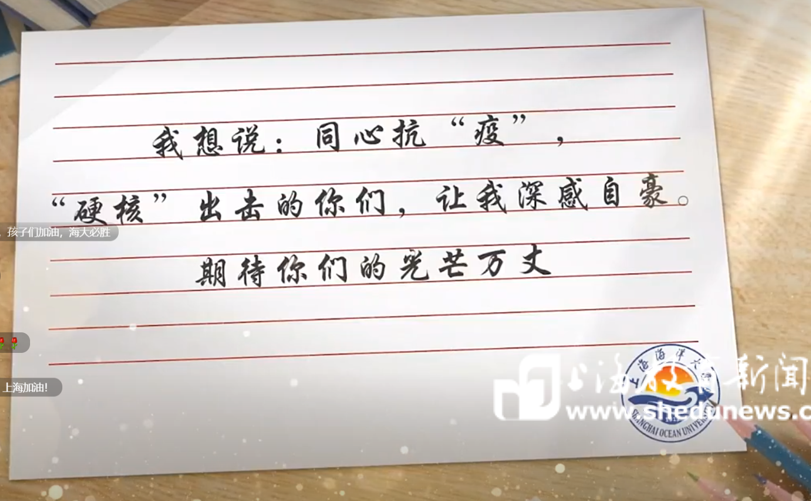 我想说：同心抗“疫”，
“硬核”出击的你们，让我深感自豪。
孩子们加油，海大必胜
期待你们的光芒万丈
上海加油！
上海海洋大学
上海教育新闻
www.shedunews.co
SHANGHAI OCEAN UNIVERS